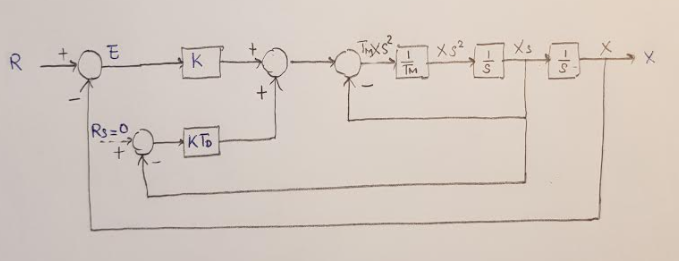 R + E K + + T_M X S² 1/T_M X S² 1/S X S 1/S X X
− + −
RS=0 + − K T_D